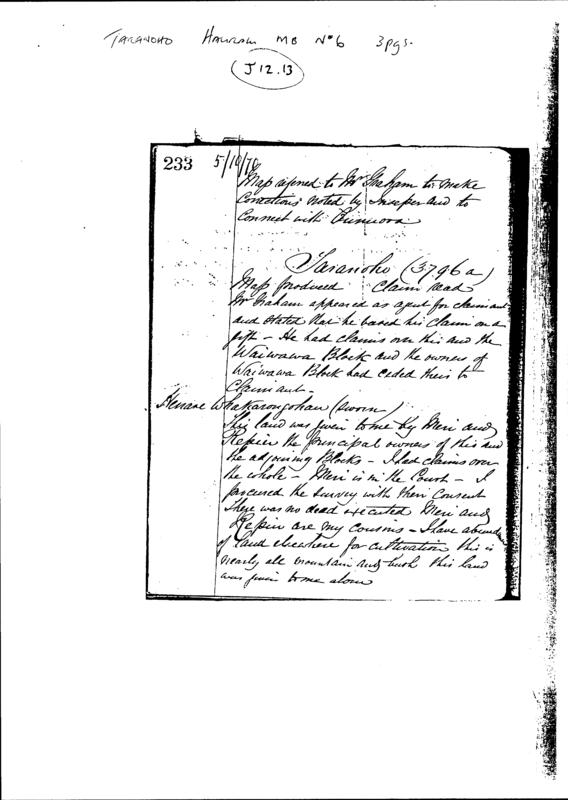 TARANOHO HAURAKI MB No 6 3pgs.
J 12.13
233 5/10/78
Map referred to Mr Graham to make
Corrections noted by Inspector and to
Connect with
Taranoho (3796a)
Map produced Claim read
Mr Graham appeared as agent for claimant
and stated that he based his claim on a
gift - He had claims over this and the
Waiwawa Block and the owners of
Waiwawa Block had ceded their to
Claimant -
Henare Whakarongohau (sworn)
This land was given to me by Meri and
the principal owners of this and
the adjoining Blocks - I had claims over
the whole - Meri is in the Court - I
procured the survey with their Consent
There was no deed executed Meri and
are my cousins - I have abundance
of land elsewhere for cultivation this is
nearly all mountain and bush this land
was given to me alone